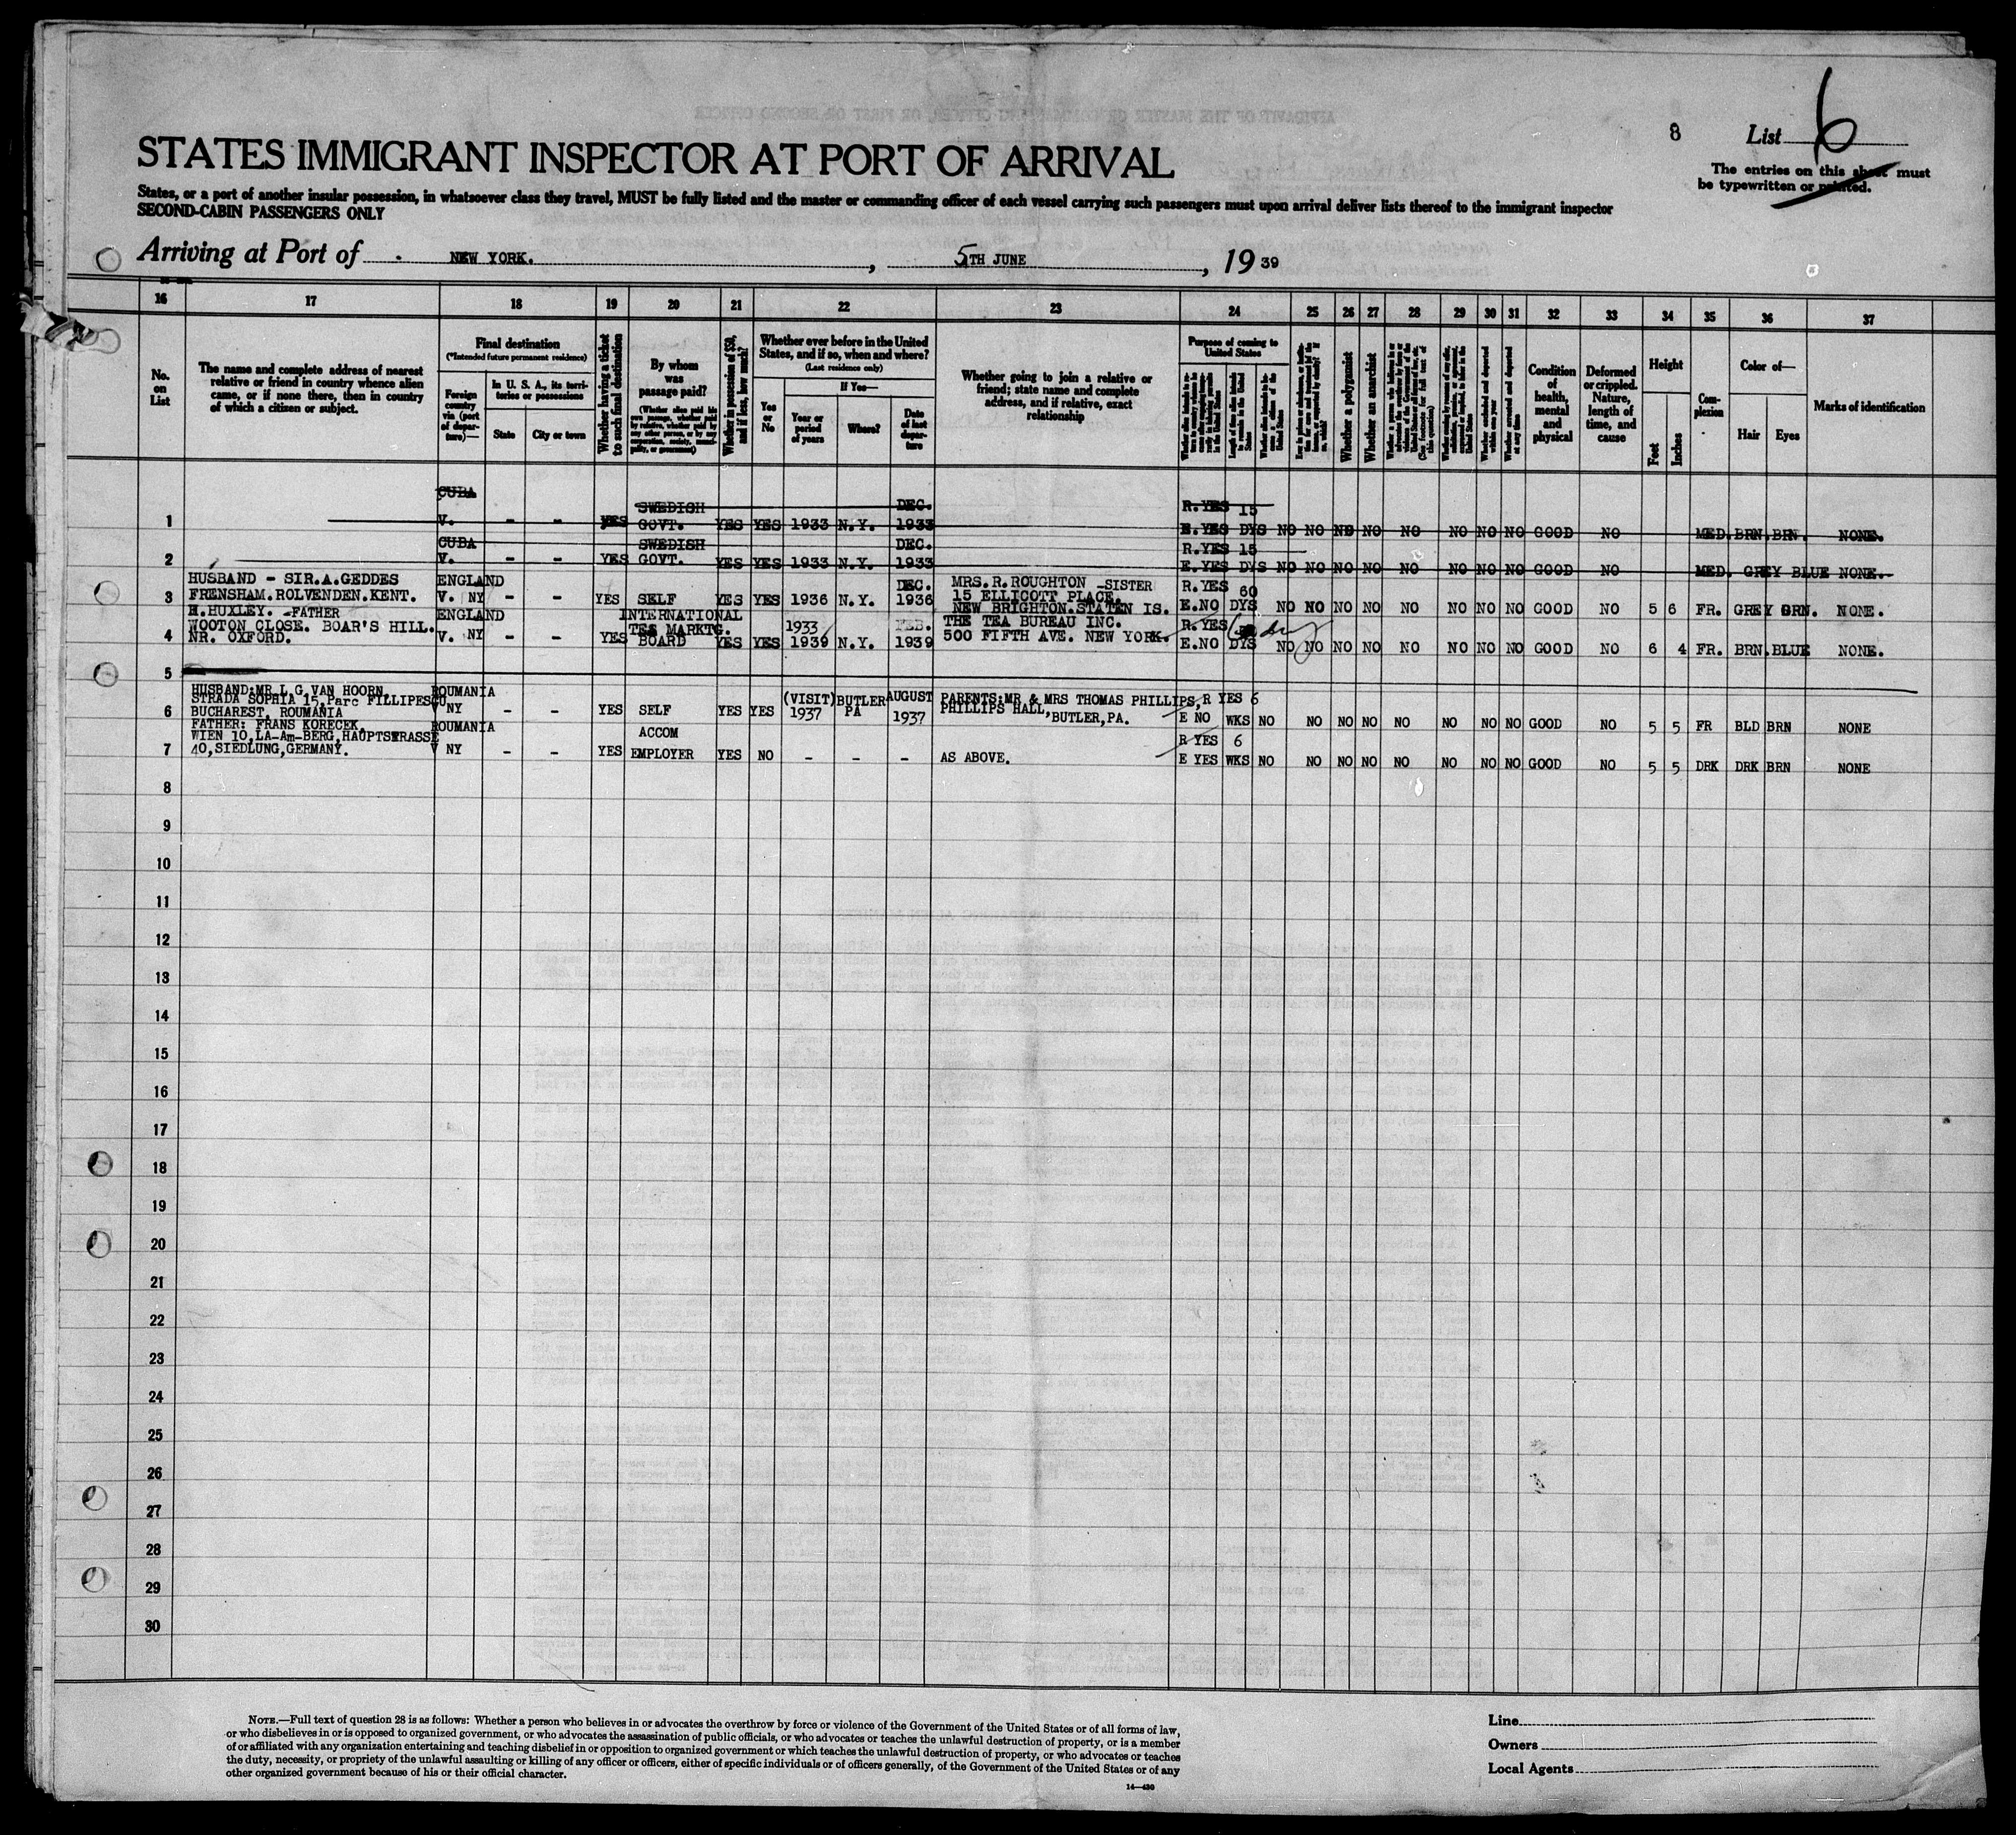 8
List 6
The entries on this sheet must
be typewritten or printed.
STATES IMMIGRANT INSPECTOR AT PORT OF ARRIVAL
States, or a port of another insular possession, in whatsoever class they travel, MUST be fully listed and the master or commanding officer of each vessel carrying such passengers must upon arrival deliver lists thereof to the immigrant inspector
SECOND-CABIN PASSENGERS ONLY
Arriving at Port of NEW YORK. , 5TH JUNE , 19 39
16 17 18 19 20 21 22 23 24 25 26 27 28 29 30 31 32 33 34 35 36 37
No. on List
The name and complete address of nearest
relative or friend in country whence alien
came, or if none there, then in country
of which a citizen or subject.
Final destination
(*Intended future permanent residence)
Foreign
country
via (port
of depar-
ture)—
In U. S. A., its terri-
tories or possessions
State
City or town
Whether having a ticket
to such final destination
By whom
was
passage paid?
Whether in possession of $50,
and if less, how much?
Whether ever before in the United
States, and if so, when and where?
(Last residence only)
Yes
or
No
If Yes—
Year or
period
of years
Where?
Date
of last
depar-
ture
Whether going to join a relative or
friend; state name and complete
address, and if relative, exact
relationship
Purpose of coming to
United States
Whether a polygamist
Whether an anarchist
Condition
of
health,
mental
and
physical
Deformed
or crippled.
Nature,
length of
time, and
cause
Height
Feet
Inches
Com-
plexion
Color of—
Hair
Eyes
Marks of identification
CUBA SWEDISH DEC. R.YES 15
1 V. - - YES GOVT. YES YES 1933 N.Y. 1933 E.YES DYS NO NO NO NO NO NO NO NO GOOD NO MED. BRN. BRN. NONE.
CUBA SWEDISH DEC. R.YES 15
2 V. - - YES GOVT. YES YES 1933 N.Y. 1933 E.YES DYS NO NO NO NO NO NO NO NO GOOD NO MED. GREY BLUE NONE.
HUSBAND - SIR.A.GEDDES ENGLAND DEC. MRS.R.ROUGHTON -SISTER R.YES 60
3 FRENSHAM.ROLVENDEN.KENT. V. NY - - YES SELF YES YES 1936 N.Y. 1936 15 ELLICOTT PLACE.
NEW BRIGHTON.STATEN IS. E.NO DYS NO NO NO NO NO NO NO NO GOOD NO 5 6 FR. GREY BRN. NONE.
H.HUXLEY. -FATHER ENGLAND INTERNATIONAL THE TEA BUREAU INC. R.YES
WOOTON CLOSE. BOAR'S HILL. TEA MARKTG. 1933 FEB.
4 NR. OXFORD. V. NY - - YES BOARD YES YES 1939 N.Y. 1939 500 FIFTH AVE. NEW YORK. E.NO DYS NO NO NO NO NO NO NO NO GOOD NO 6 4 FR. BRN. BLUE NONE.
5
HUSBAND:MR L G VAN HOORN ROUMANIA
STRADA SOPHIA 15,Parc FILLIPESCU, (VISIT) BUTLER AUGUST PARENTS:MR & MRS THOMAS PHILLIPS, R YES 6
6 BUCHAREST, ROUMANIA V NY - - YES SELF YES YES 1937 PA 1937 PHILLIPS HALL, BUTLER,PA. E NO WKS NO NO NO NO NO NO NO NO GOOD NO 5 5 FR BLD BRN NONE
FATHER: FRANS KORECEK, ROUMANIA
WIEN 10,LA-Am-BERG,HAUPTSTRASSE ACCOM R YES 6
7 40,SIEDLUNG,GERMANY. V NY - - YES EMPLOYER YES NO - - - AS ABOVE. E YES WKS NO NO NO NO NO NO NO NO GOOD NO 5 5 DRK DRK BRN NONE
8
9
10
11
12
13
14
15
16
17
18
19
20
21
22
23
24
25
26
27
28
29
30
NOTE.—Full text of question 28 is as follows: Whether a person who believes in or advocates the overthrow by force or violence of the Government of the United States or of all forms of law,
or who disbelieves in or is opposed to organized government, or who advocates the assassination of public officials, or who advocates or teaches the unlawful destruction of property, or is a member
of or affiliated with any organization entertaining and teaching disbelief in or opposition to organized government or which teaches the unlawful destruction of property, or who advocates or teaches
the duty, necessity, or propriety of the unlawful assaulting or killing of any officer or officers, either of specific individuals or of officers generally, of the Government of the United States or of any
other organized government because of his or their official character.
14—430
Line
Owners
Local Agents